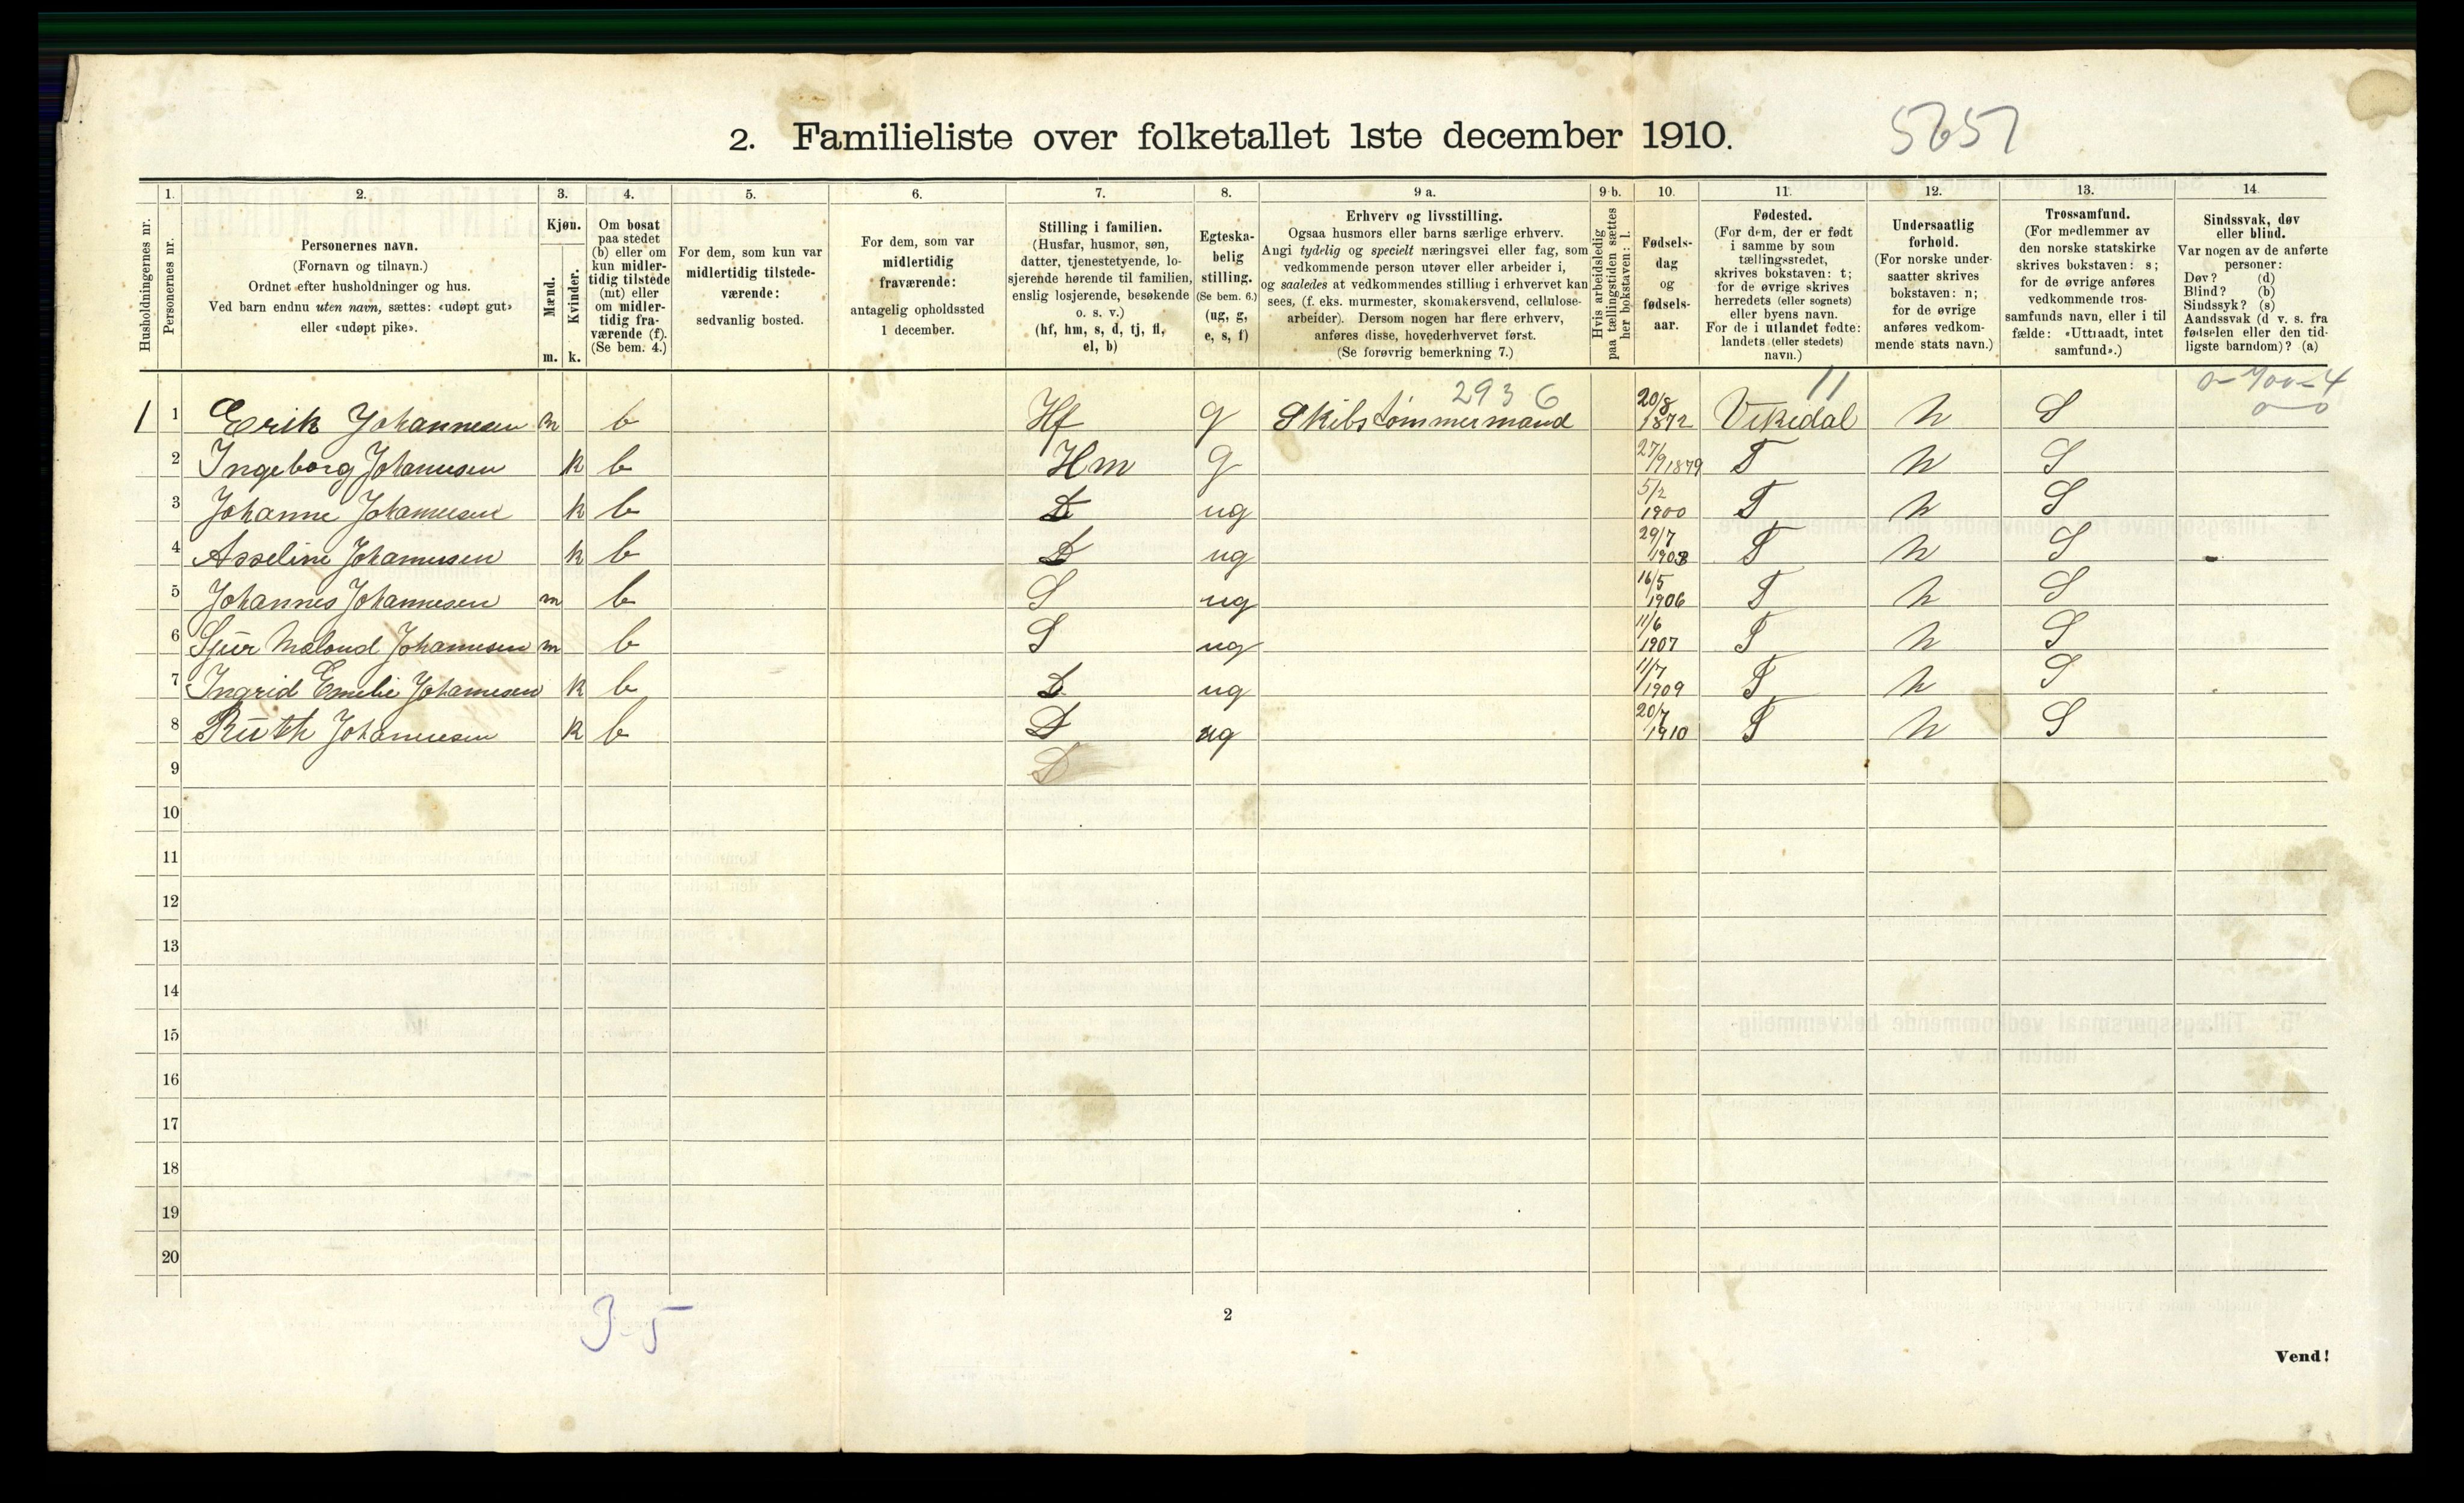 2. Familieliste over folketallet 1ste december 1910.
5651
Husholdningernes nr.
1.
Personernes nr.
2.
Personernes navn.
(Fornavn og tilnavn.)
Ordnet efter husholdninger og hus.
Ved barn endnu uten navn, sættes: «udøpt gut»
eller «udøpt pike».
3.
Kjøn.
Mænd.
m.
Kvinder.
k.
4.
Om bosat
paa stedet
(b) eller om
kun midler-
tidig tilstede
(mt) eller
om midler-
tidig fra-
værende (f).
(Se bem. 4.)
5.
For dem, som kun var
midlertidig tilstede-
værende:
sedvanlig bosted.
6.
For dem, som var
midlertidig
fraværende:
antagelig opholdssted
1 december.
7.
Stilling i familien.
(Husfar, husmor, søn,
datter, tjenestetyende, lo-
sjerende hørende til familien,
enslig losjerende, besøkende
o. s. v.)
(hf, hm, s, d, tj, fl,
el, b)
8.
Egteska-
belig
stilling.
(Se bem. 6.)
(ug, g,
e, s, f)
9 a.
Erhverv og livsstilling.
Ogsaa husmors eller barns særlige erhverv.
Angi tydelig og specielt næringsvei eller fag, som
vedkommende person utøver eller arbeider i,
og saaledes at vedkommendes stilling i erhvervet kan
sees, (f. eks. murmester, skomakersvend, cellulose-
arbeider). Dersom nogen har flere erhverv,
anføres disse, hovederhvervet først.
(Se forøvrig bemerkning 7.)
9 b.
Hvis arbeidsledig
paa tællingstiden sættes
her bokstaven: l.
10.
Fødsels-
dag
og
fødsels-
aar.
11.
Fødested.
(For dem, der er født
i samme by som
tællingsstedet,
skrives bokstaven: t;
for de øvrige skrives
herredets (eller sognets)
eller byens navn.
For de i utlandet fødte:
landets (eller stedets)
navn.)
12.
Undersaatlig
forhold.
(For norske under-
saatter skrives
bokstaven: n;
for de øvrige
anføres vedkom-
mende stats navn.)
13.
Trossamfund.
(For medlemmer av
den norske statskirke
skrives bokstaven: s;
for de øvrige anføres
vedkommende tros-
samfunds navn, eller i til
fælde: «Uttraadt, intet
samfund».)
14.
Sindssvak, døv
eller blind.
Var nogen av de anførte
personer:
Døv? (d)
Blind? (b)
Sindssyk? (s)
Aandssvak (d v. s. fra
fødselen eller den tid-
ligste barndom)? (a)
2936 11 0-700-4
0-0
1 1 Erik Johannesen m b Hf g Skibstømmermand 20/8 1872 Vikedal n S
2 Ingeborg Johannesen k b Hm g 27/9 1879 T n S
3 Johanne Johannesen k b D ug 5/2 1900 T n S
4 Asseline Johannesen k b D ug 29/7 1903 T n S
5 Johannes Johannesen m b S ug 16/5 1906 T n S
6 Sjur Moland Johannesen m b S ug 11/6 1907 T n S
7 Ingrid Emelie Johannesen k b D ug 11/7 1909 T n S
8 Ruth Johannesen k b D ug 20/7 1910 T n S
9 D
10
11
12
13
14
15
16
17
18
19
20
3-5
2
Vend!